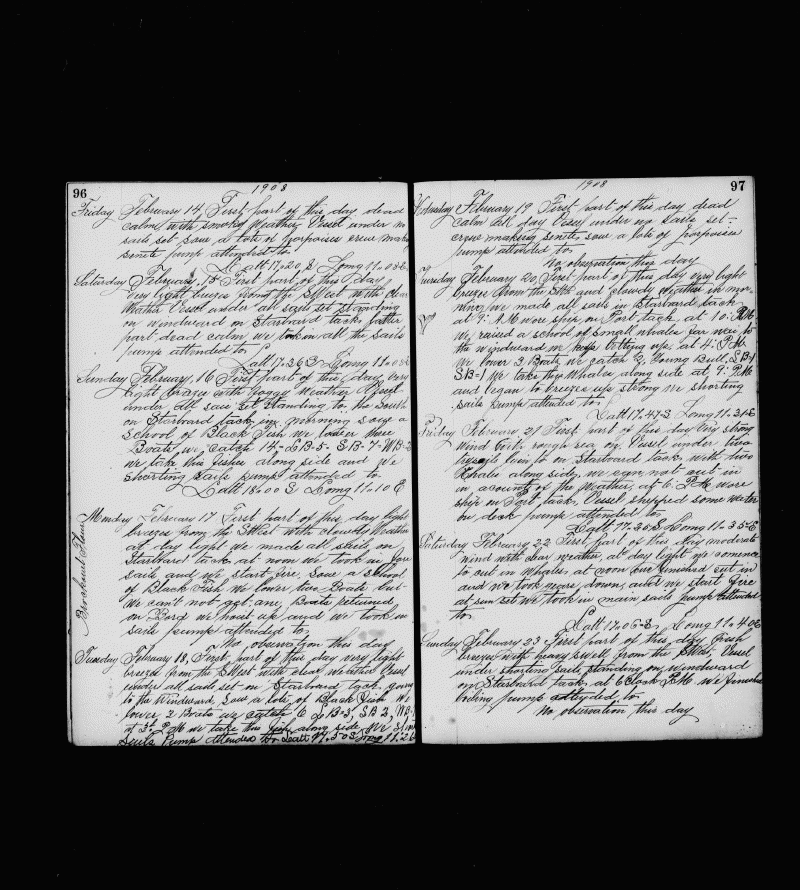 96
1908
Friday February 14 First part of this day dead
calm with smoky Weather Vessel under
sails set saw a lots of porpoises crew make
sinets pump attended to
Latt 17.20 S Long 11.03 E
Saturday February 15 First part of this day
Very light breeze from the SWest with clear
Weather Vessel under all sails set standing
on windward on Starboard tack latter
part dead calm we took in all the sails
pump attended to
Latt 17.26 S Long 11.0
Sunday February 16 First part of this day very
light breeze with foggy Weather Vessel
under all sail set standing to the South
on Starboard tack in morning saw a
School of Black Fish we lower three
Boats we catch 14- LB-5- SB-7-WB-2
we take this fishes along side and we
shorting sails pump attended to
Latt 18.00 S Long 11.10 E
Monday February 17 First part of this day light
breeze from the SWest with cloudy Weather
at day light we made all sails on
Starboard tack at noon we took in fore
sails and we start fire Saw a School
of Black Fish We lower two Boats but
We can't not get any Boats returned
on Board we hoist up and we took in
sails pump attended to
No observation this day
Tuesday February 18 First part of this day very light
breeze from the SWest with clear weather Vessel
under all sail set on Starboard tack going
to the Windward Saw a lots of Black Fish we
lower 2 Boats we catch 6 LB-3, SB 2, WB-
at 3: P.M we take this fish along side We
Sails Pump Attended to Latt 17.50 S Long 11.26
97
1908
Wednesday February 19 First part of this day dead
calm all day Vessel under no sails set-
crew making sinets, saw a lots of porpoises
pump attended to
No observation this day
February 20 First part of this day very light
breeze from the Sth and cloudy weather in mor
ning we made all sails in Starboard tack
at 9: A.M wore ship on Port tack at 10: P.M.
We raised a school of small whales far way to
the windward we up at 4: P.M.
We lower 3 Boats we catch 2 Young Bull, LB-1
SB-1 We take this Whales along side at 9: P.M
and began to breeze up strong we shorting
sails Pump attended to
Latt 17.47 S Long 11.31 E
Friday February 21 First part of this day Very strong
wind with rough sea on Vessel under two
lain to on Starboard tack with two
Whale along side, we can not cut in
on account of the Weather, at 6: P.M wore
ship on Port tack. Vessel shipped some water
on deck pump attended to
Latt 17.26 S Long 11.35 E
Saturday February 22 First part of this day moderate
Wind with clear weather, at day light we comence
to cut in Whales, at noon we finished cut in
and we took down, after we start fire
at sun set we took in main sails pump attended
to
Latt 17.06 S, Long 11.40 E
Sunday February 23 First part of this day fresh
breeze with heavy swell from the SWest, Vessel
under shorting sails, standing on windward
on Starboard tack, at 6 o'clock P.M We finished
boiling pump attended to
No observation this day